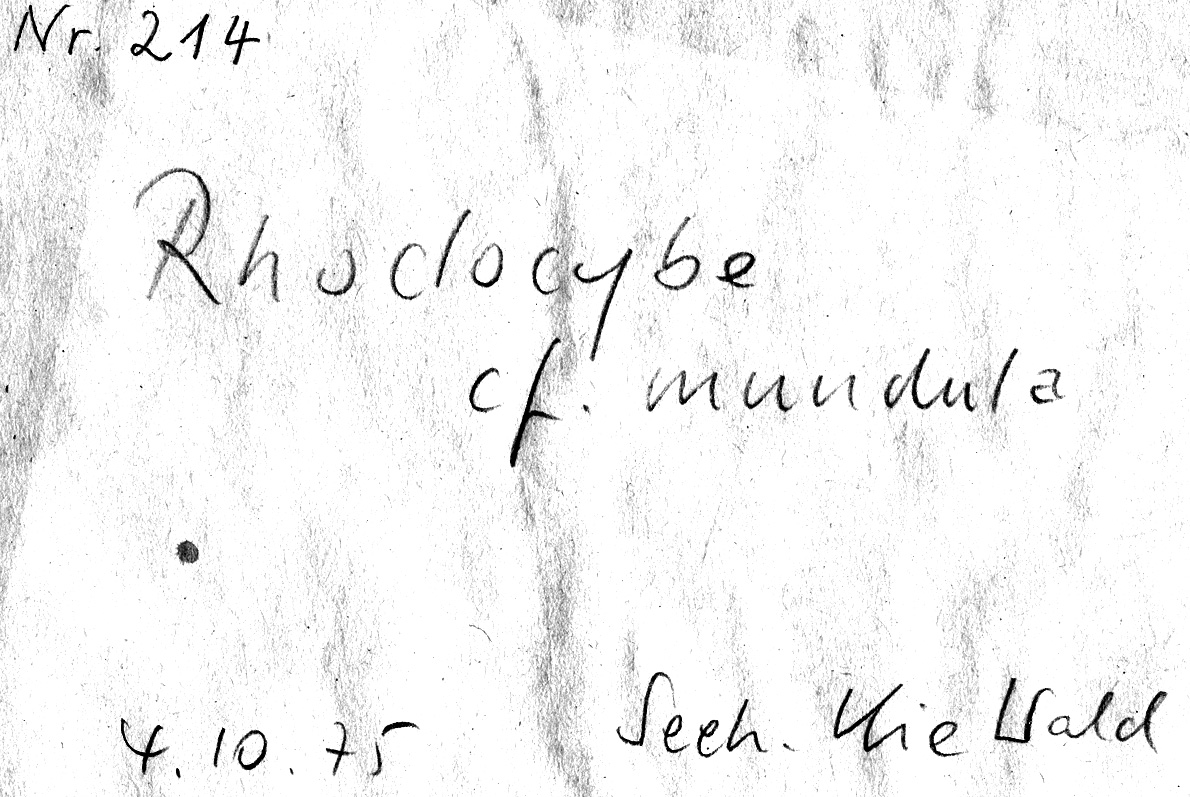 Nr. 214
Rhodocybe
cf. mundula
4.10.75 Seeh. Kie Wald